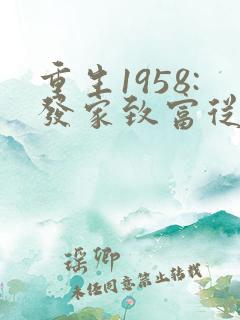 重生1958:
發家致富從
瑶卿
未任同意禁止转载